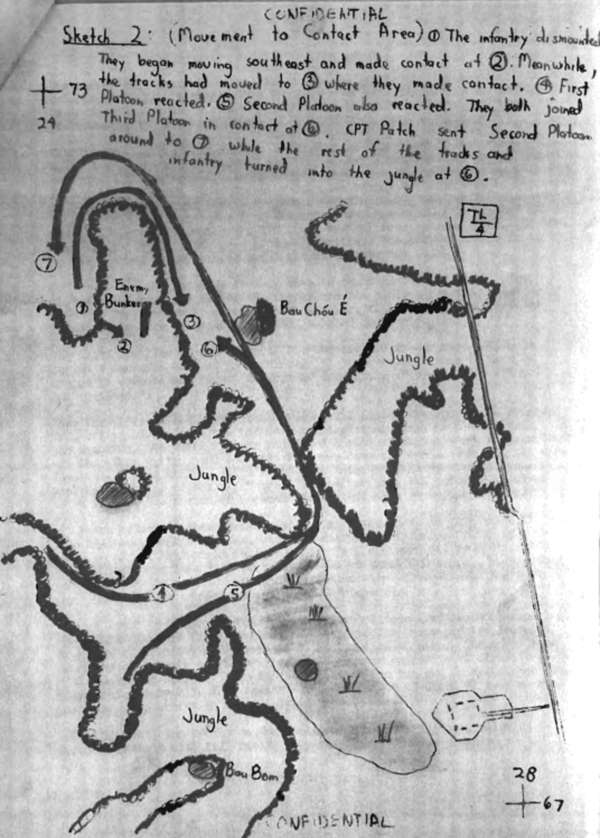 CONFIDENTIAL
Sketch 2: (Movement to Contact Area) ① The infantry dismounted
They began moving southeast and made contact at ②. Meanwhile,
the tracks had moved to ③ where they made contact. ④ First
Platoon reacted. ⑤ Second Platoon also reacted. They both joined
Third Platoon in contact at ⑥. CPT Patch sent Second Platoon
around to ⑦ while the rest of the tracks and
infantry turned into the jungle at ⑥.
73
24
TL
4
⑦
Enemy
Bunker
①
③
②
⑥
Bau Chóu É
Jungle
Jungle
④
⑤
Jungle
Bau Bom
28
67
CONFIDENTIAL